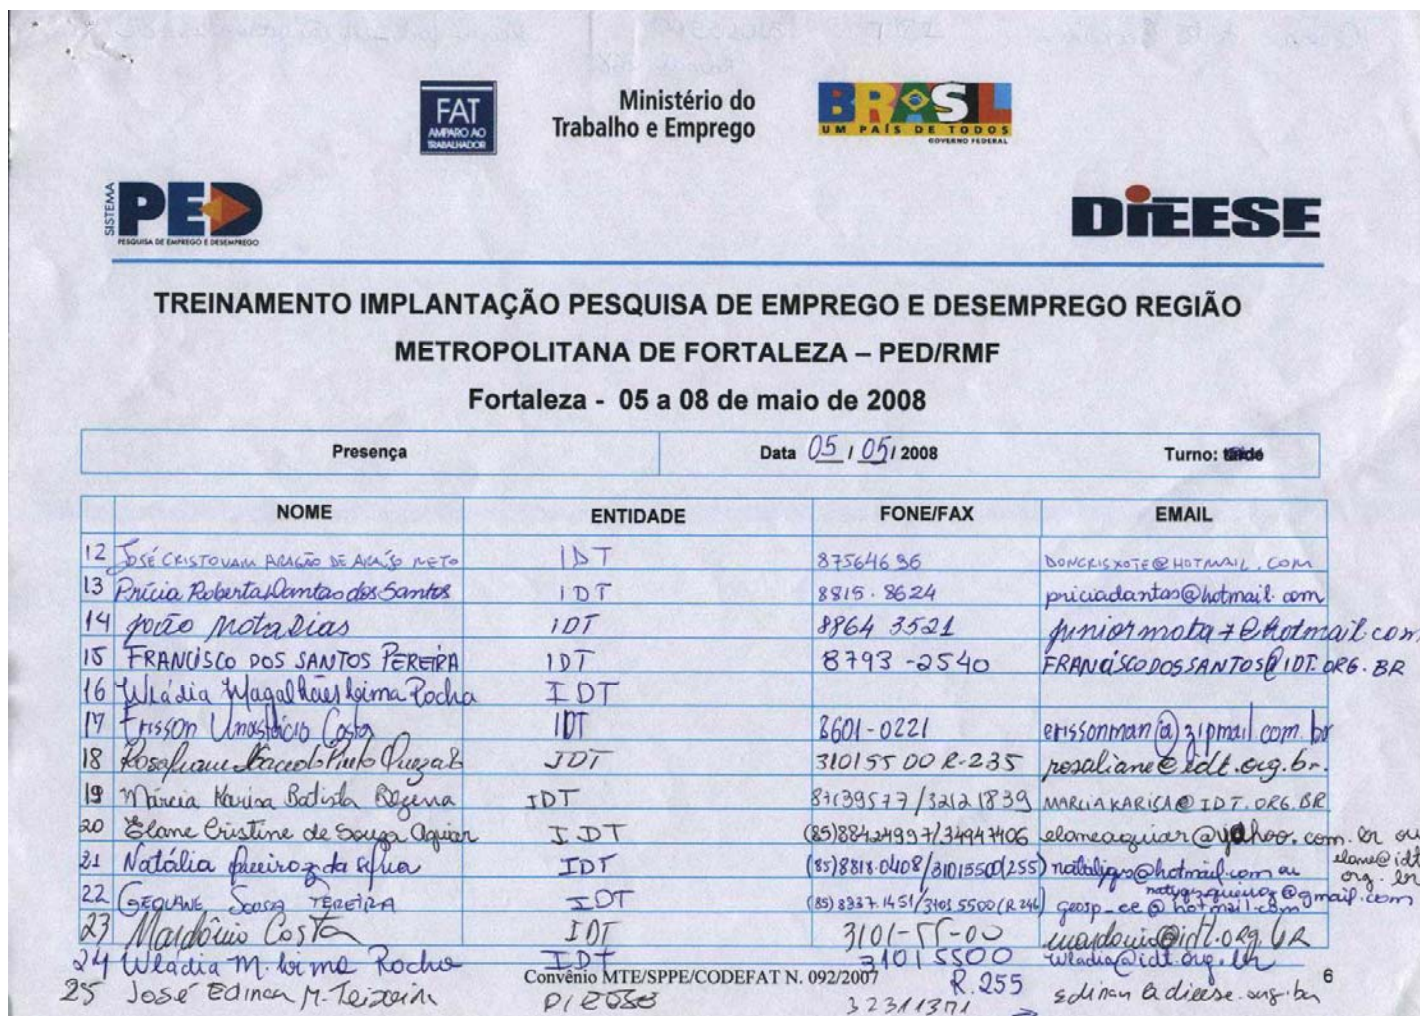 FAT
AMPARO AO
TRABALHADOR
Ministério do
Trabalho e Emprego
BRASIL
UM PAÍS DE TODOS
GOVERNO FEDERAL
SISTEMA
PED
PESQUISA DE EMPREGO E DESEMPREGO
DIEESE
TREINAMENTO IMPLANTAÇÃO PESQUISA DE EMPREGO E DESEMPREGO REGIÃO
METROPOLITANA DE FORTALEZA – PED/RMF
Fortaleza - 05 a 08 de maio de 2008
Presença Data 05 / 05 / 2008 Turno: tarde
NOME ENTIDADE FONE/FAX EMAIL
12 JOSÉ CRISTOVAM ARAGÃO DE ARAÚJO NETO IDT 87564696 DONCRISXOTE@HOTMAIL.COM
13 Prícia Roberta Dantas dos Santos IDT 8815.8624 priciadantas@hotmail.com
14 João Mota Dias IDT 8864 3521 juniormota7@hotmail.com
15 FRANCISCO DOS SANTOS PEREIRA IDT 8793-2540 FRANCISCODOSSANTOS@IDT.ORG.BR
16 Wládia Magalhães Lima Rocha IDT
17 Erisson Anastácio Costa IDT 8601-0221 erissonman@zipmail.com.br
18 Macedo Pinto IDT 31015500 R-235 rosaliane@idt.org.br.
19 Márcia Karisa Batista Bezerra IDT 87139577/32121839 MARCIAKARISA@IDT.ORG.BR
20 Elane Cristine de Souza Aguiar IDT (85)88424997/34947406 elaneaguiar@yahoo.com.br ou
elane@idt
org.br
21 Natália Queiroz da Silva IDT (85)8818.0408/31015500(255) @hotmail.com ou
@gmail.com
22 GEOVANE Sousa PEREIRA IDT (85)8837.1451/3101.5500(R.246) geosp_ce@hotmail.com
23 Mardônio Costa IDT 3101-55-00 mardonio@idt.org.BR
24 Wládia M. Lima Rocha IDT 31015500 wladia@idt.org.br
Convênio MTE/SPPE/CODEFAT N. 092/2007 R.255 6
25 José Edinan M. Teixeira DIEESE 32311371 edinan@dieese.org.br